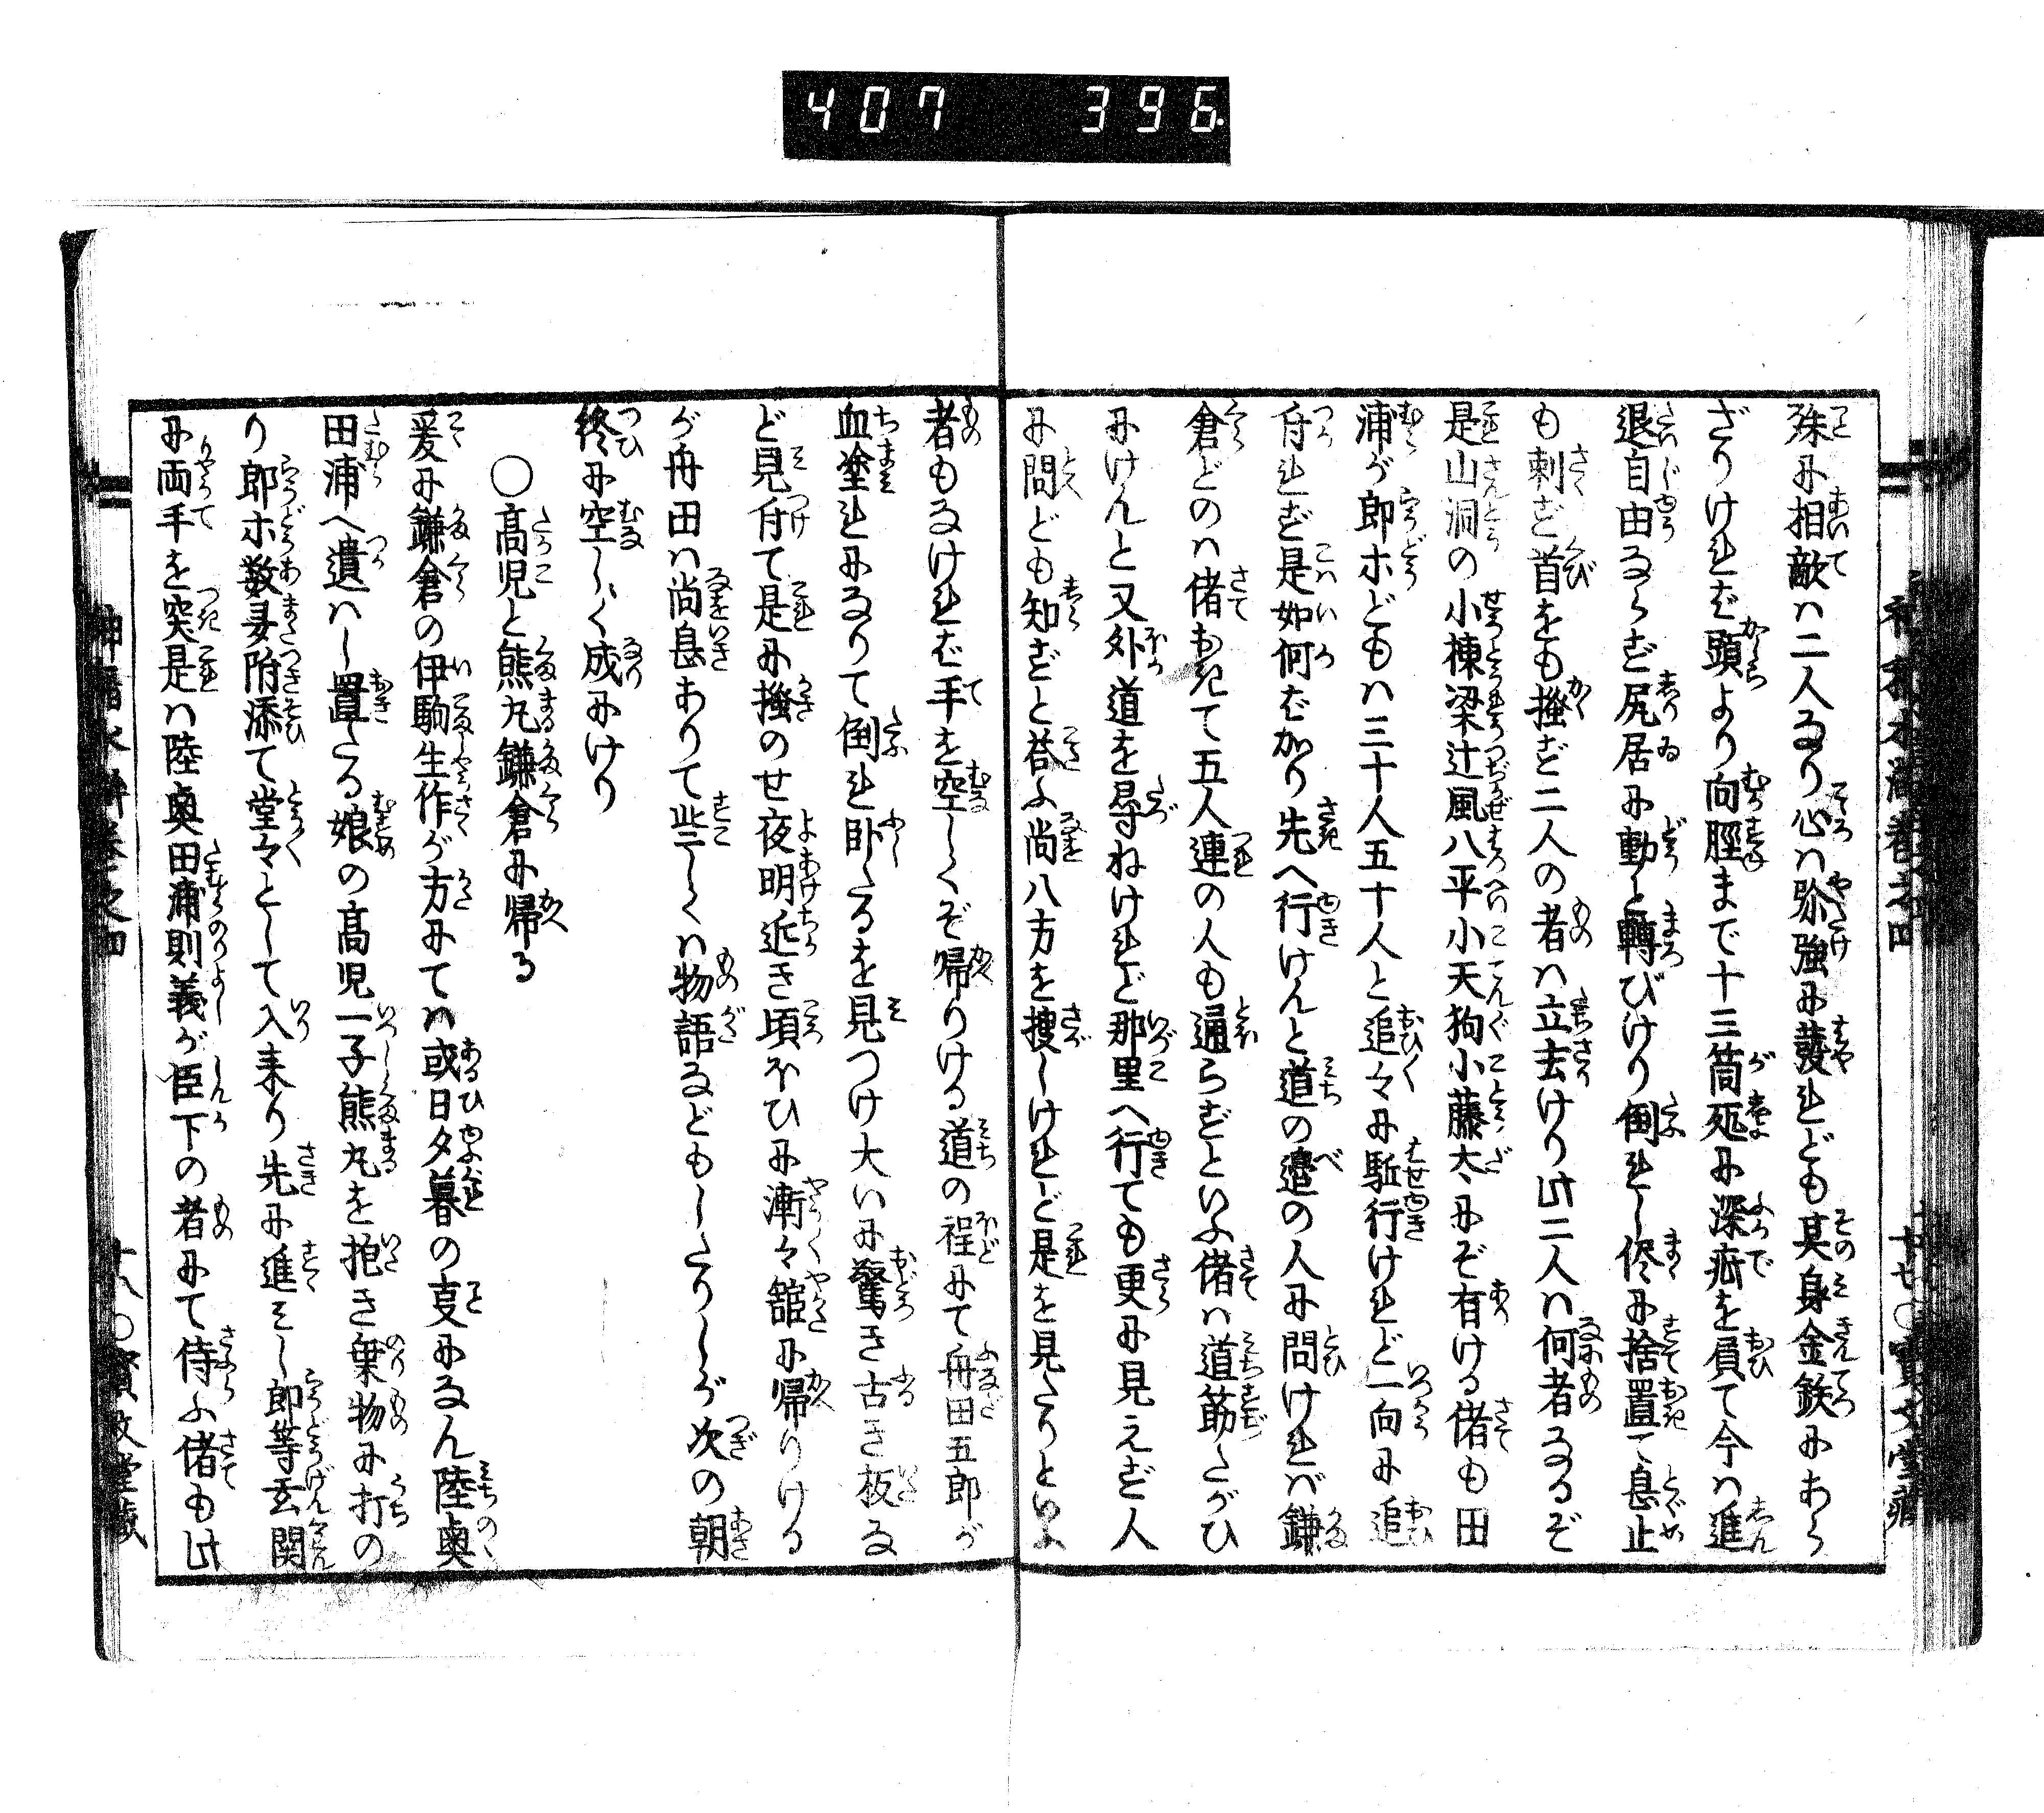 407 396.
殊に相敵は二人なり心は弥強に護れども其身金鉄にあら
ざりければ頭より向脛まで十三箇死に深疵を負て今は進
退自由ならず尻居に動と轉びけり倒れし侭に捨置て息止
も刺ず首をも掻ず二人の者は立去けり此二人は何者なるぞ
是山洞の小棟梁辻風八平小天狗小藤太にぞ有ける偖も田
浦が郎等どもは三十人五十人と追々に駈行けれど一向に追
付れず是如何ばかり先へ行けんと道の邉の人に問ければ鎌
倉どのは偖おきて五人連の人も通らずといふ偖は道筋たがひ
にけんと又外道を尋ねけれど那里へ行ても更に見えず人
に問ども知ずと荅ふ尚八方を捜しけれど是を見たりといふ
者もなければ手を空しくぞ帰りける道の程にて舟田五郎が
血塗れになりて倒れ臥たるを見つけ大いに驚き古き板な
ど見付て是に掻のせ夜明近き頃ほひに漸々舘に帰りける
が舟田は尚息ありて些しくは物語などもしたりしが次の朝
終に空しく成にけり
〇高児と熊丸鎌倉に帰る
爰に鎌倉の伊駒生作が方にては或日夕暮の叓になん陸奥
田浦へ遣はし置たる娘の高児一子熊丸を抱き乗物に打の
り郎等数多附添て堂々として入来り先に進みし郎等玄関
に両手を突是は陸奥田浦則義が臣下の者にて侍ふ偖も此
十七〇寳文堂蔵
神稲水滸巻之四
十八〇寳文堂蔵